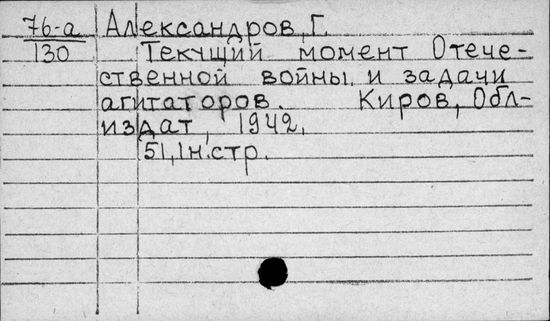 76-а Александров, Г.
130 Текущий момент Отече-
ственной войны и задачи
агитаторов. Киров, Обл-
издат, 1942.
51, 1 н. стр.